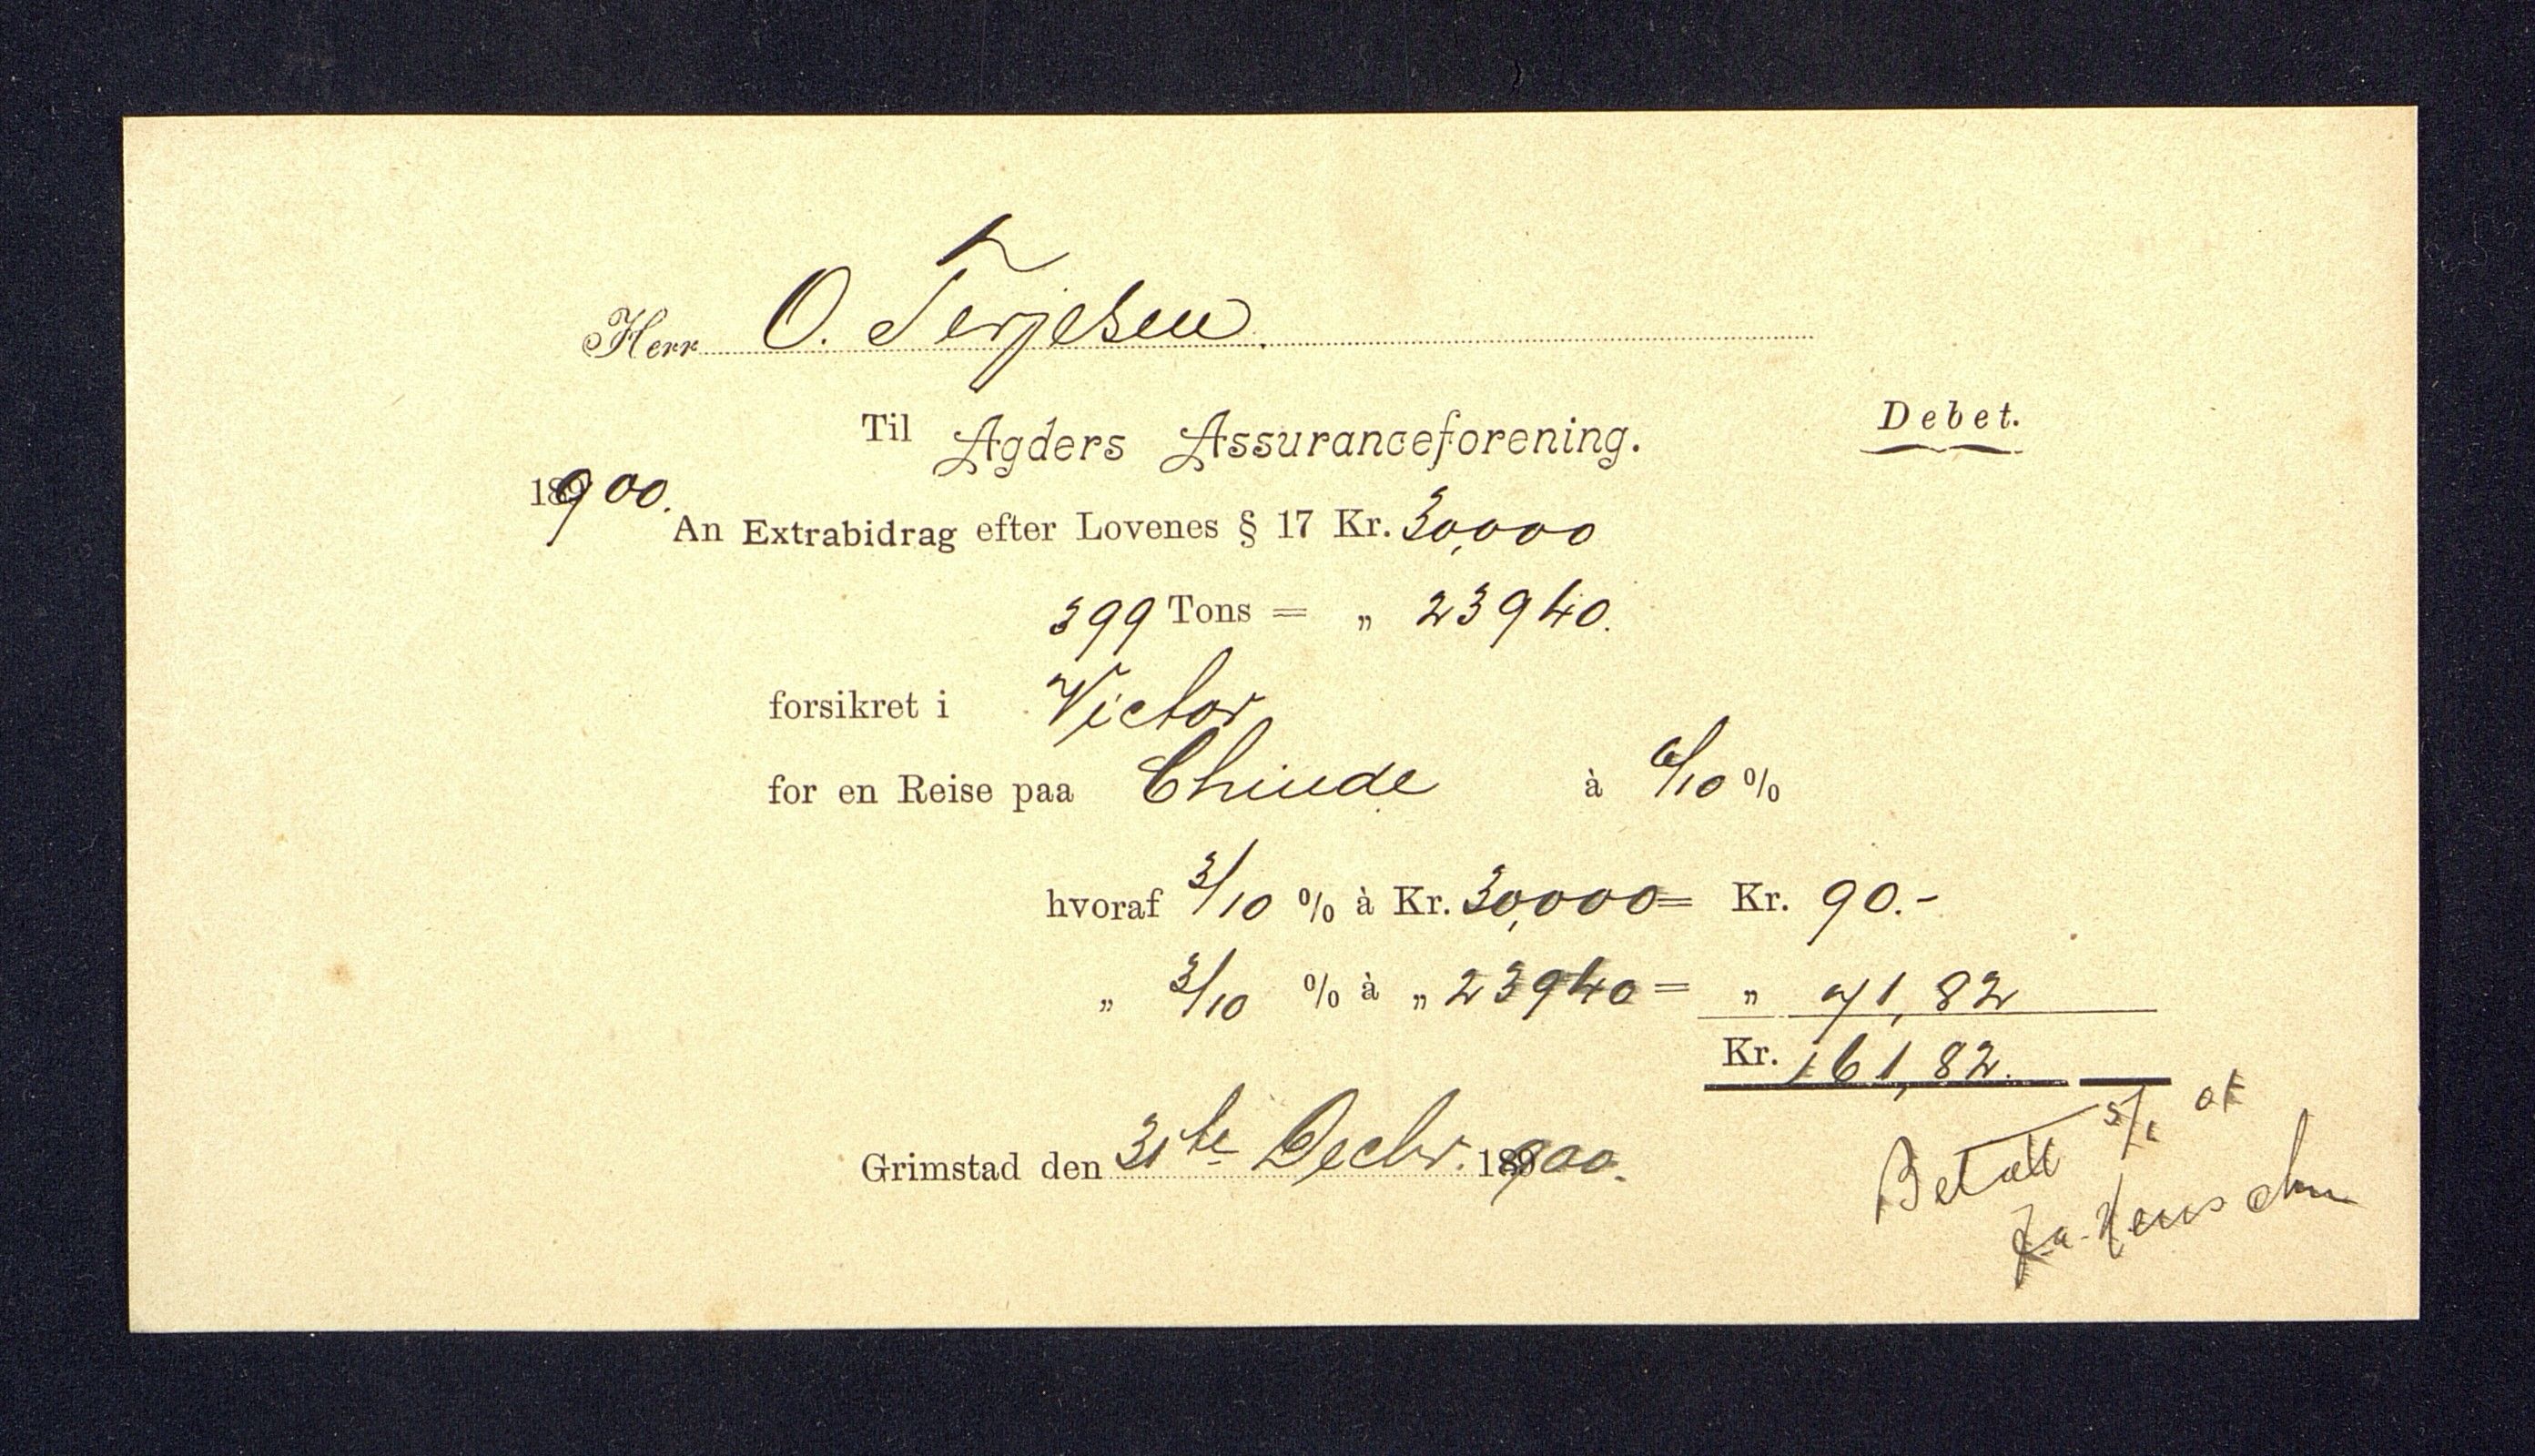 Herr O. Terjesen.
Til Agders Assuranceforening. Debet.
1900.
An Extrabidrag efter Lovenes § 17 Kr. 30,000
399 Tons = „ 23940.
forsikret i Victor
for en Reise paa Chinde à 6/10 %
hvoraf 3/10 % à Kr. 30,000 = Kr. 90.-
„ 3/10 % à „ 23940 = „ 71,82
Kr. 161,82.
Grimstad den 31te Decbr. 1900.
Betalt 5/1 01